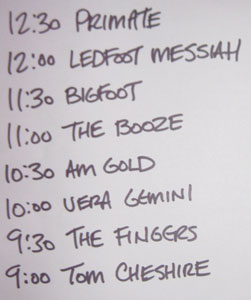 12:30 PRIMATE
12:00 LEDFOOT MESSIAH
11:30 BIGFOOT
11:00 THE BOOZE
10:30 AM GOLD
10:00 VERA GEMINI
9:30 THE FINGERS
9:00 TOM CHESHIRE